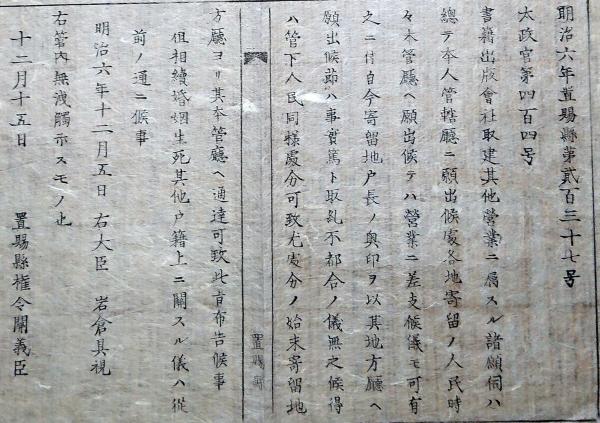 明治六年置賜縣第貳百三十七号
太政官第四百四号
書籍出版會社取建其他營業ニ属スル諸願伺ハ
總テ本人管轄廳ニ願出候處各地寄留ノ人民時
々本管廳ヘ願出候テハ營業ニ差支候儀モ可有
之ニ付自今寄留地戸長ノ奥印ヲ以其地方廳ヘ
願出候節ハ事實篤ト取糺不都合ノ儀無之候得
ハ管下人民同様處分可致尤處分ノ始末寄留地
置賜縣
方廳ヨリ其本管廳ヘ通達可致此旨布告候事
但相續婚姻生死其他戸籍上ニ關スル儀ハ從
前ノ通ニ候事
明治六年十二月五日 右大臣 岩倉具視
右管内無洩觸示スモノ也
十二月十五日 置賜縣權令關義臣